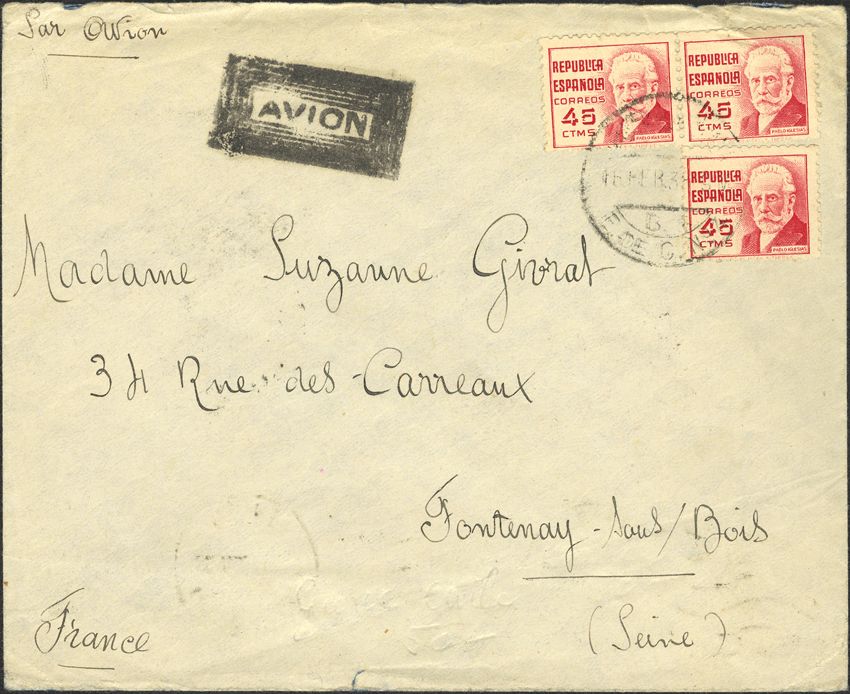 Par Avion
AVION
REPUBLICA
ESPAÑOLA
CORREOS
45
CTMS
PABLO IGLESIAS
REPUBLICA
ESPAÑOLA
CORREOS
45
CTMS
PABLO IGLESIAS
REPUBLICA
ESPAÑOLA
CORREOS
45
CTMS
PABLO IGLESIAS
16 FEB. 38
DE C
Madame Suzanne Givrat
34 Rue des Carreaux
Fontenay-sous/Bois
(Seine)
France